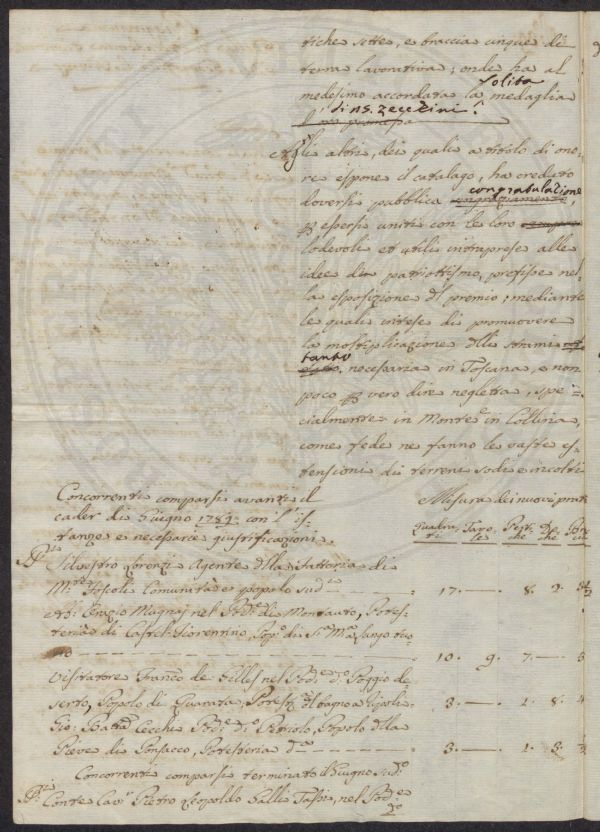 tiche sette, e braccia cinque di
terra lavorativa; onde ha al
solita
medesimo accordata la medaglia
di ns. zecchini.
Agli altri, dei quali a titolo di ono-
re espone il catalago, ha creduto
congratulazione
doversi pubblica
p essersi uniti con le loro
lodevoli et utili intraprese alle
idee di patriottismo, prefisse nel-
la esposizione dl premio; mediante
le quali intese di promuovere
la moltiplicazione dlli strami
tanto
necessaria in Toscana, e non
poco p vero dire negletta, spe-
cialmente in Monte e in Collina,
come fede ne fanno le vaste es-
tensioni di terreni sodi e incolti
Concorrenti comparsi avanti il
cader di Giugno 1784. con l'is-
tanze e necessarie giustificazioni.
Misura dei nuovi prati
Quadra-ti Tavo-le Pert-che De- Brac-cia
Silvestro Lorenzi Agente dlla fattoria di
Comunità e popolo sud.
17. — 8. 2.
Ab: Orazio Magnaj nel Pod.e di Montauto, Potes-
teria di Castel-Fiorentino, Pop.o di S.a M.a Lungo
10. 9. 7. —
Visitatore Franc.o de Gilles nel Pod.e d.o Poggio de-
serto, Popolo di Quarata, Potes. dl bagno a Ripoli.
3. — 1. 8.
Gio: Batta Cecchi Pod.e d.o Popolo dlla
Pieve di Ponsacco, Potesteria d.a
3. — 1. 3.
Concorrenti comparsi terminato il Giugno sud.o
Conte Cav.r Pietro Leopoldo Galli Tassi, nel Pod.e